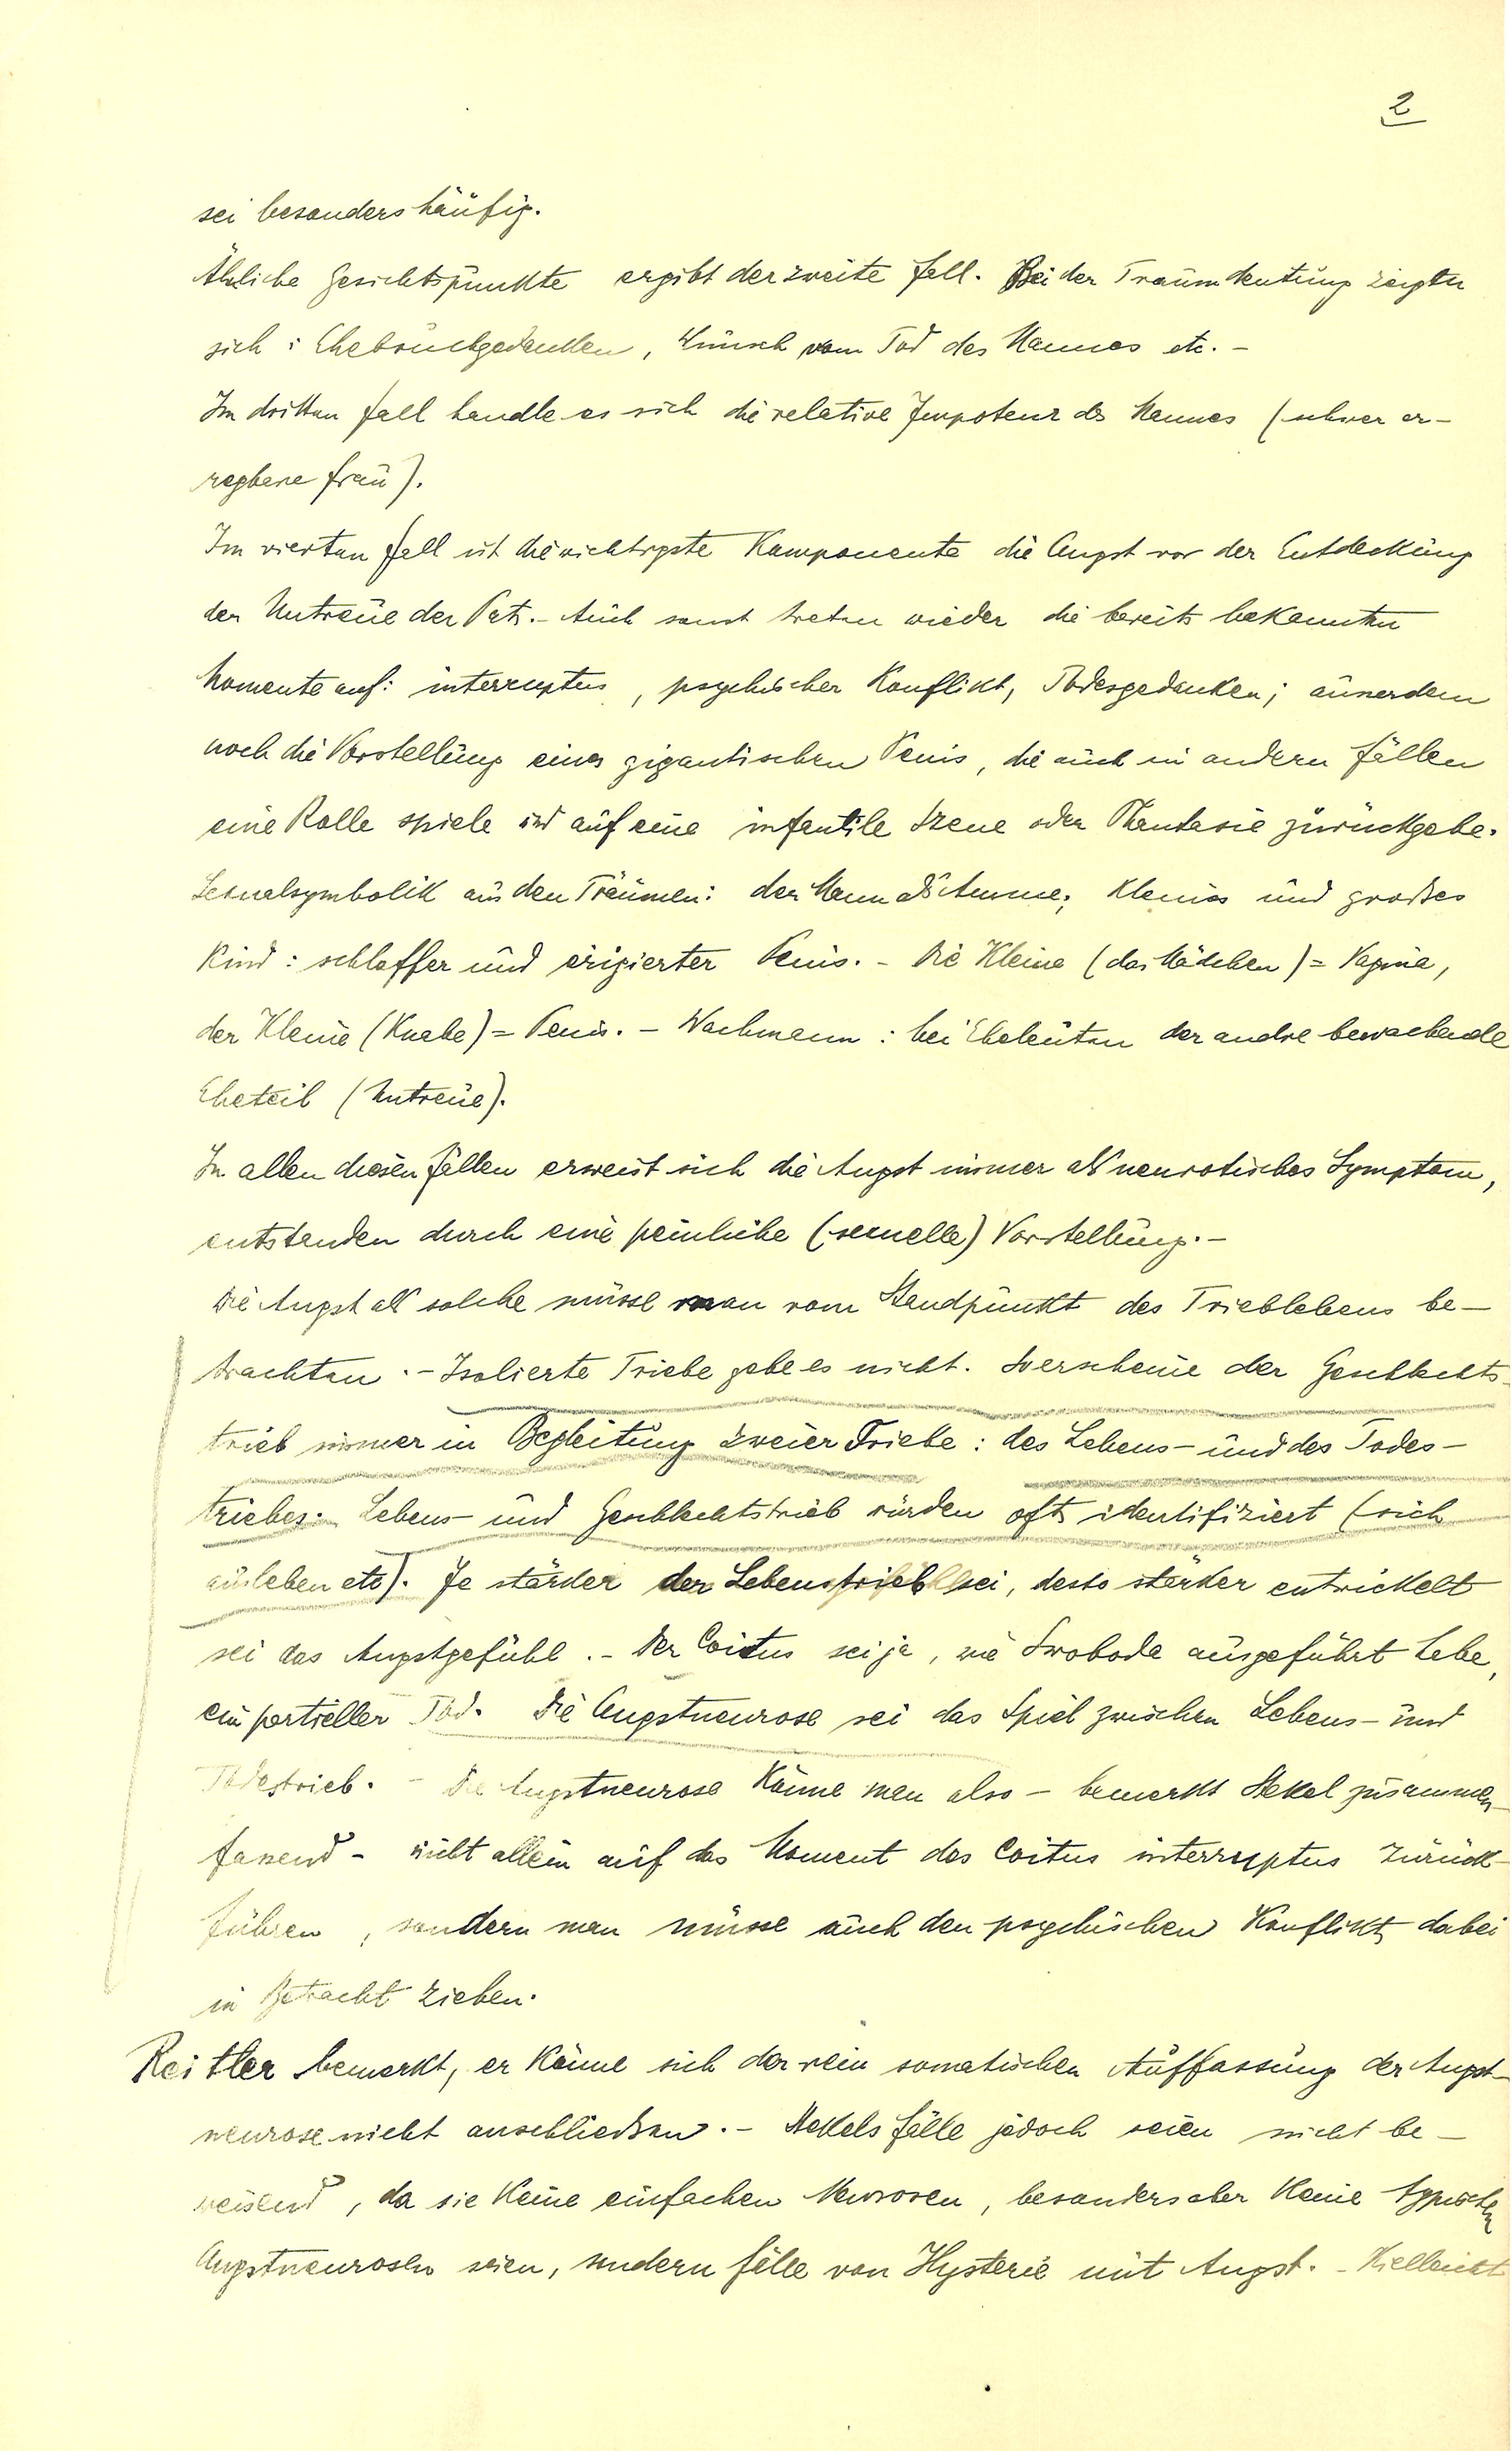 2
sei besonders häufig.
Ähnliche Gesichtspunkte ergibt der zweite Fall. Bei der Traumdeutung zeigten
sich: Ehebruchgedanken, Wunsch vom Tod des Mannes etc. –
Im dritten Fall handle es sich die relative Impotenz des Mannes (schwer er-
regbare Frau).
Im vierten Fall ist die wichtigste Komponente die Angst vor der Entdeckung
der Untreue der Pat. – Auch sonst treten wieder die bereits bekannten
Momente auf: interruptus, psychischer Konflikt, Todesgedanken; ausserdem
noch die Vorstellung eines gigantischen Penis, die auch in andern Fällen
eine Rolle spiele und auf eine infantile Szene oder Phantasie zurückgehe.
Sexualsymbolik aus den Träumen: der Mann als Amme; kleines und großes
Kind: schlaffer und erigierter Penis. – Die Kleine (das Mädchen) = Vagina,
der Kleine (Knabe) = Penis. – Wachmann: bei Eheleuten der andre bewachende
Eheteil (Untreue).
In allen diesen Fällen erweist sich die Angst immer als neurotisches Symptom,
entstanden durch eine peinliche (sexuelle) Vorstellung. –
Die Angst als solche müsse man vom Standpunkt des Trieblebens be-
trachten. – Isolierte Triebe gebe es nicht. So erscheine der Geschlechts-
trieb immer in Begleitung zweier Triebe: des Lebens- und des Todes-
triebes. Lebens- und Geschlechtstrieb würden oft identifiziert (sich
ausleben etc). Je stärker der Lebenstrieb sei, desto stärker entwickelt
sei das Angstgefühl. – Der Coitus sei ja, wie Swoboda ausgeführt habe,
ein partieller Tod. Die Angstneurose sei das Spiel zwischen Lebens- und
Todestrieb. – Die Angstneurose könne man also – bemerkt Stekel zusammen-
fassend – nicht allein auf das Moment des Coitus interruptus zurück-
führen, sondern man müsse auch den psychischen Konflikt dabei
in Betracht ziehen.
Reitler bemerkt, er könne sich der rein somatischen Auffassung der Angst-
neurose nicht anschließen. – Stekels Fälle jedoch seien nicht be-
weisend, da sie keine einfachen Neurosen, besonders aber keine typischen
Angstneurosen seien, sondern Fälle von Hysterie mit Angst. – Vielleicht